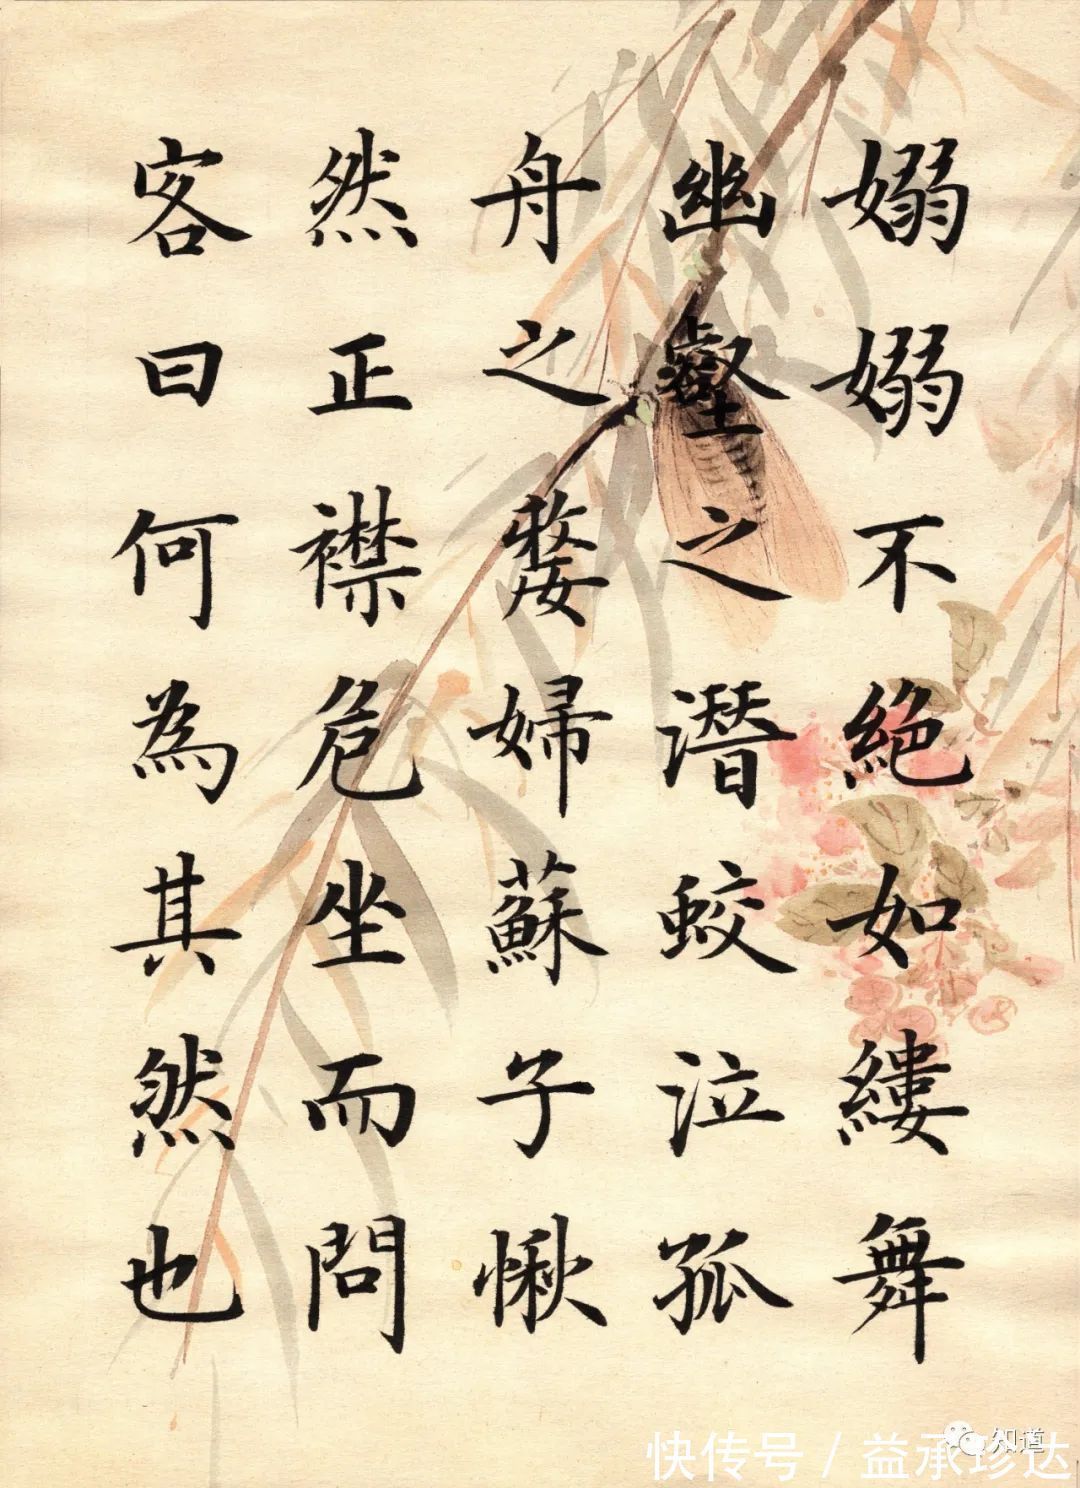 嫋嫋不絶如縷舞
幽壑之潛蛟泣孤
舟之嫠婦蘇子愀
然正襟危坐而問
客曰何為其然也
知道
快传号 / 益承珍达